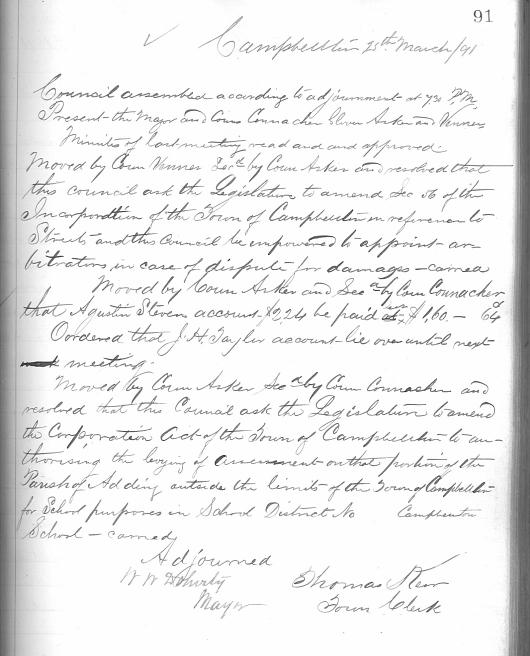 91
Campbellton 25th March/91
Council assembled according to adjournment at 7 30 P.M.
Present the Mayor and Couns Connacher Asker and Venner
Minutes of last meeting read and approved
Moved by Coun Venner Secd by Coun Asker and resolved that
this council ask the Legislature to amend Sec 56 of the
Incorporation of the Town of Campbellton in reference to
Streets and this Council be impowered to appoint ar-
bitrators in case of dispute for damages - carried
Moved by Coun Asker and Secd by Coun Connacher
that Agustin Stevens account $2.24 be paid $1.60 - 64
Oordered that J. H. Taylor account lie over until next
meeting.
Moved by Coun Asker Secd by Coun Connacher and
resolved that this Council ask the Legislation to amend
the Corporation Act of the Town of Campbellton to au-
thorising the levying of assessment on that portion of the
Parish of Addington outside the limits of the Town of Campbellton
for School purposes in School District No Campbellton
School - carried
Adjourned
W W Doherty
Mayor
Thomas Kerr
Town Clerk